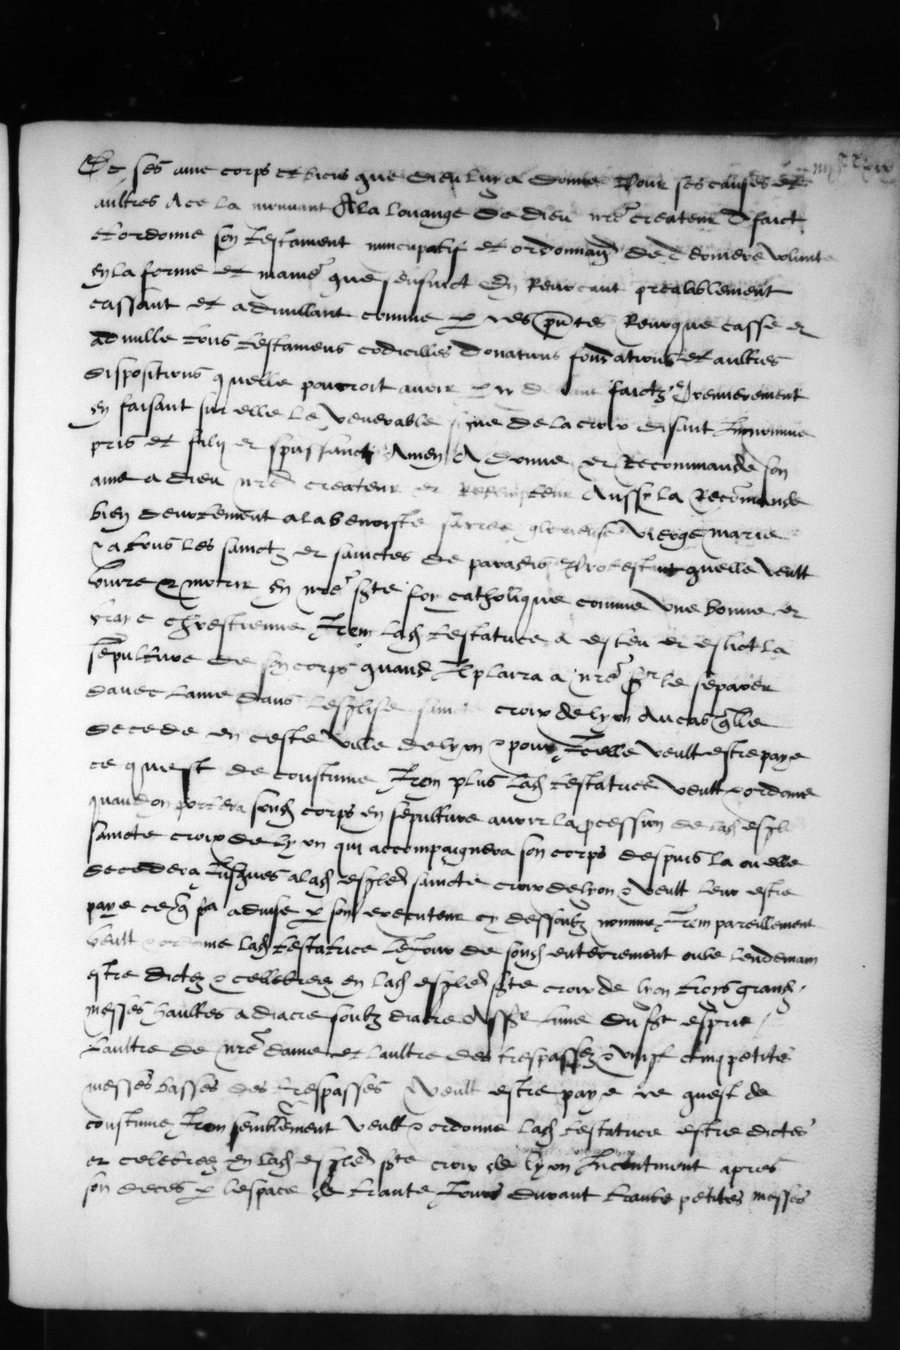 De ses ame corps et biens que dieu luy a donne Pour ses causes et
aultres a ce la mouvant A la louange de dieu nre createur a faict
et ordonne son testament nuncupatif et ordonnan de derniere volunte
en la forme et manie que sensuict En Revocant prealablement
cassant et adnullant comme p ces pntes Revoque casse et
adnulle tous testamens codicilles donations fondations et aultres
dispositions quelle pourroit avoir p cy devant faictz Premierement
en faisant sur elle le venerable signe de la croix disant In nomine
pris et filij et spus sancti Amen A donne et Recommande son
ame a dieu nre createur et Redempteur Aussy la Recomande
bien devotement a la benoiste sacree glorieuse vierge marie
& a tous les sainctz et sainctes de paradis Protestant quelle veult
vivre & morir en nre ste foy catholique comme une bonne et
vraye chrestienne Item lad testatrice a esleu et eslict la
sepulture de son corps quand Il plaira a nre sr le separer
davec lame dans leglise saincte croix de lyon Au cas qlle
decede en ceste ville de lyon & pour Icelle veult estre paye
ce quest de coustume Item plus lad testatrice veult & ordonne
quand on portera sond corps en sepulture avoir la pcession de lad esgl
saincte croix de lyon qui accompaignera son corps despuis la ou elle
decedera Jusques a lad esglise saincte croix de lyon & veult leur estre
paye ce q sa advise p son executeur cy dessoubz nomme Item pareillement
veult & ordonne lad testatrice le Jour de sond enterrement ou le lendemain
estre dictes & cellebrez en lad esglise ste croix de lyon troys grand
messes haultes a diacre soubz diacre Assr lune du st esprit
laultre de nre dame et laultre des trespassez & vingt cinq petites
messes basses des trespasses Veult estre paye ce quest de
coustume Item semblement veult & ordonne lad testatrice estre dictes
et celebrez en lad esglise ste croix de lyon Incontinent apres
son deces p lespace de trante Jours durant trante petites messes